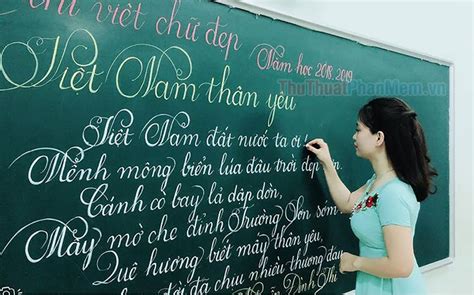 thi viết chữ đẹp
Năm học 2018-2019
Việt Nam thân yêu
ThuThuatPhanMem.vn
Việt Nam đất nước ta ơi
Mênh mông biển lúa đâu trời đẹp
Cánh cò bay lả dập dờn,
Mây mờ che đỉnh Trường Sơn sớm
Quê hương biết mấy thân yêu,
đời đã chịu nhiều thương đau
Đình Thi